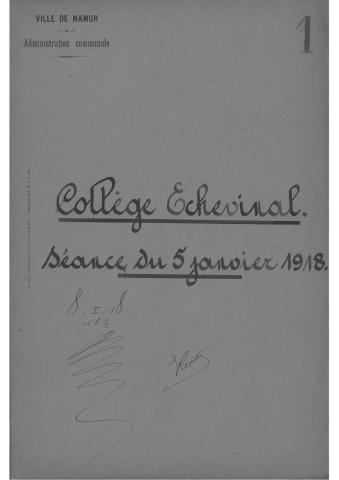 VILLE DE NAMUR
Administration communale
1
Collège Echevinal.
Séance du 5 janvier 1918.
8. I. 18.